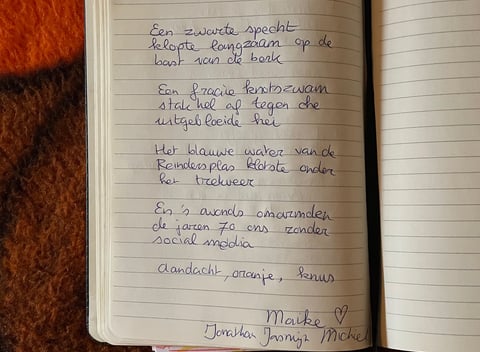 Een zwarte specht
klopte langzaam op de
bast van de berk
Een fraaie knotszwam
stak hel af tegen de
uitgebloeide hei
Het blauwe water van de
Reindersplas klotste onder
het trekveer
En 's avonds omarmden
de jaren 70 ons zonder
social media
aandacht, oranje, knus
Maike ♡
Jonathan Jasmijn Michiel